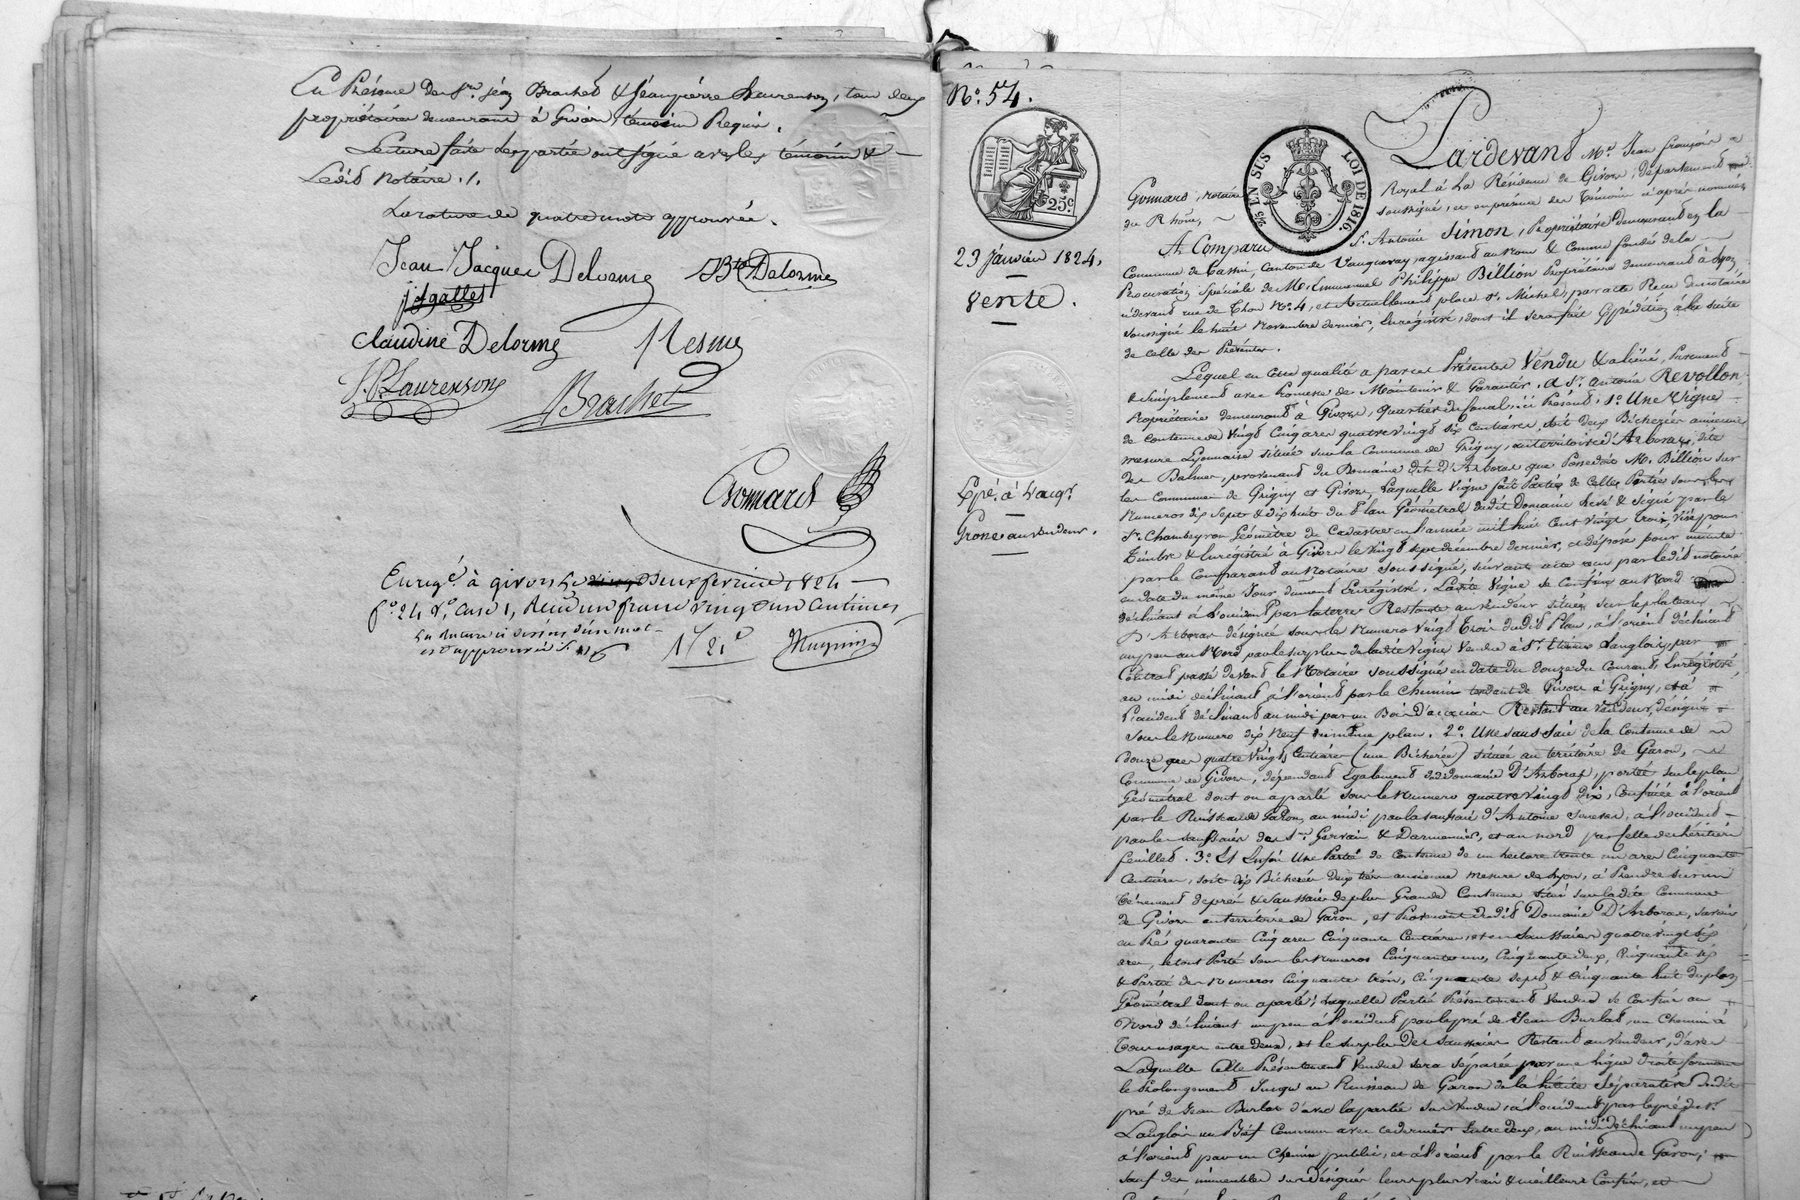 En Présence de Srs. jean Brachet & Jeanpierre Laurenson, tous deux
propriétaires demeurant à Givors, témoins Requis.
Lecture faite Les parties ont signé avec les témoins &
Ledit Notaire ./.
La rature de quatre mots approuvée.
Jean Jacques Delorme JBte Delorme
Claudine Delorme Nesme
J.P. Laurenson
Brachet
Gonnard
Enregé. à givors le deux fevrier 1824
fo. 24 Vo. Case 1, Reçu un franc vingt un Centimes
est approuvée
1/21c
No. 54.
25c
EN SUS LOI DE 1816.
23 janvier 1824.
Vente.
Expé. à l'acqr.
Grosse au vendeur.
Pardevant Me. Jean françois
Gonnard, Notaire Royal à La Résidence de Givors, département
du Rhône, soussigné, et en présence des Témoins ci après nommés
A Comparu Sr. Antoine Simon, Propriétaire Demeurant en la
Commune de Tassin, Canton de Vaugneray, agissant au Nom & Comme fondé de la
Procuration Spéciale de Mr. Emmanuel Philippe Billion Propriétaire demeurant à Lyon
cidevant rue de Thou No. 4, et Actuellement place St. Michel, par acte Recu du notaire
soussigné le huit Novembre dernier, Enregistré, dont il sera fait Expédition à la suite
de celle des Présentes.
Lequel en cette qualité a par ces Présentes Vendu & aliéné, Purement
& Simplement avec Promesse de Maintenir & Garantir. A Sr. Antoine Revollon,
Propriétaire demeurant à Givors, quartier du Canal, ici Présent, 1o. Une Vigne
de Contenue de Vingt Cinq ares quatre vingt six centiares, soit deux Bicherées ancienne
mesure Lyonnaise située sur la Commune de Grigny, au territoire d'Arboras, dite
des Balmes, provenant du Domaine dit d'Arboras que Possedoit M. Billion sur
les Communes de Grigny et Givors, Laquelle Vigne fait Partie de Celles Portées sous les
Numeros dix sept & dix huit du Plan Géométral dudit Domaine Levé & Signé par le
Sr. Chambeyron Géomètre du Cadastre en l'année mil huit Cent vingt trois, visé pour
Timbre & Enregistré à Givors le vingt sept décembre dernier, et déposé pour minute
par le Comparant au Notaire Soussigné, suivant acte recu par ledit notaire
en date du même Jour dument Enregistré. Ladite Vigne se Confine au Nord
déclinant à l'occident par la terre Restante au vendeur située sur le plateau
d'Arboras désignée sous le Numero Vingt Trois dudit Plan, à l'orient déclinant
un peu au Nord par le surplus de ladite Vigne Vendue à Sr. Etienne Langlois, par
Contrat passé devant le Notaire soussigné en date du douze du Courant, Enregistré,
au midi déclinant à l'orient par le Chemin tendant de Givors à Grigny, et à
l'occident déclinant au midi par un Bois D'acacias Restant au Vendeur, désigné
sous le Numero dix Neuf du même plan. 2o. Une Saussaie de la Contenue de
douze ares quatre Vingt Centiares (une Bicherée) située au territoire de Garon,
Commune de Givors, dépendant Egalement du Domaine D'Arboras, portée sur le plan
Géométral dont on a parlé sous le Numero quatre Vingt Dix, Confinée à l'orient
par le Ruisseau de Garon, au midi par la saussaie d'Antoine , à l'occident
par les saussaies des Srs. Gervais & Darmancier, et au nord par celle des héritiers
feuillet. 3o. Et Enfin Une Partie de Contenue de un hectare trente un ares Cinquante
Centiares, soit dix Bicherées deux tiers ancienne mesure de Lyon, à Prendre sur un
Ténement de prés & Saussaie de plus Grande Contenue situé sur ladite Commune
de Givors au territoire de Garon, et Provenant dudit Domaine D'Arboras, savoir
en Pré quarante Cinq ares Cinquante Centiares, et en saussaies quatre vingt six
ares, le tout Porté sous les Numeros Cinquante un, Cinquante deux, Cinquante six
& Partie des Numeros Cinquante trois, Cinquante sept & Cinquante huit du plan
Géométral dont on a parlé; Laquelle Partie Présentement Vendue se Confine au
Nord déclinant un peu à l'occident par le pré de Jean Burlat, un Chemin à
Tous usages entre deux, et le surplus des saussaies Restant au Vendeur, d'avec
Laquelle Celle Présentement Vendue sera séparée par une ligne droite formant
le Prolongement Jusqu'au Ruisseau de Garon de la limite Séparative dudit
pré de Jean Burlat d'avec la partie sus vendue; à l'occident par le pré du Sr.
Langlois un Bief Commun avec ce dernier Entre deux, au midi déclinant un peu
à l'orient par un Chemin public, et à l'orient par le Ruisseau de Garon;
sauf des immeubles sus désignés leurs plus vrais & meilleurs Confins, et